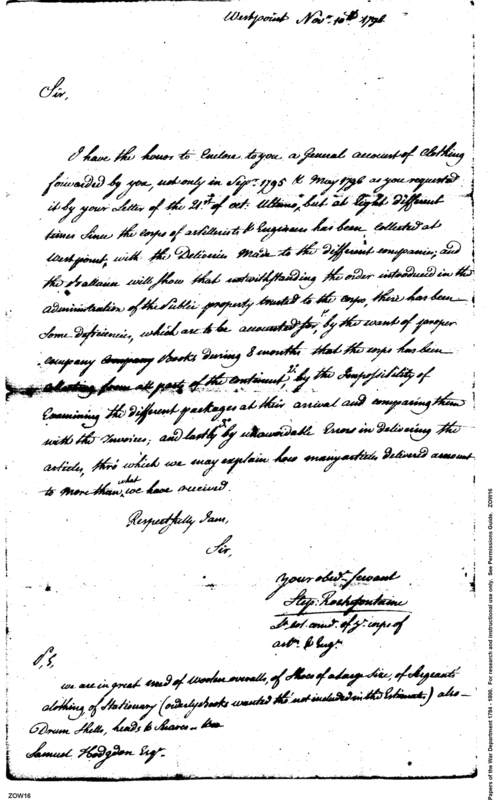 Westpoint Novr. 10th 1796.
Sir,
I have the honor to Enclose to you a General account of Clothing
forwarded by you, not only in Sepr. 1795 & May 1796 as you requested
it by your Letter of the 21st of oct. Ultimo, but at Eight different
times Since the corps of artillerists & Engineers has been collected at
Westpoint, with the Deliveries Made to the different companies; and
the Ballance will Show that notwithstanding the order introduced in the
administration of the Public property trusted to the corps, there has been
Some deficiencies, which are to be accounted for, 1st by the want of proper
company Books during 8 months that the corps has been
collecting from all parts of the continent, 2d. by the Impossibility of
Examining the different packages at their arrival and comparing them
with the Invoices; and lastly by unavoidable Errors in delivering the
articles, thro' which we may explain how many articles delivered amount
to more than what we have received.
Respectfully I am,
Sir,
your obedt. Servant
Step. Rochefontaine
Lt. col. comdt. of ye. corps of
artts. & Engrs.
P.S,
we are in great need of Woolen overalls, of Shoes of a large Size, of Sergeants
clothing, of Stationary (orderly Books wanted tho' not included in the Estimate) also
Drum Shells, heads & Snares..
Samuel Hodgdon Esqr.
ZOW16
Papers of the War Department 1784 - 1800. For research and instructional use only. See Permissions Guide. ZOW16